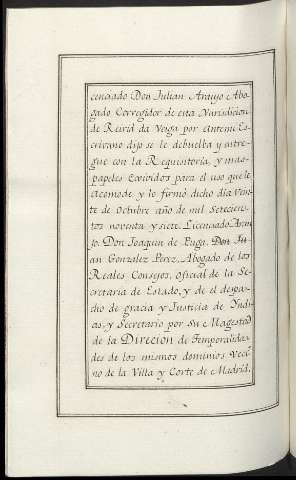 cenciado Don Julian Araujo Abo-
gado Corregidor de esta Jurisdicion
de Reirid da Veiga por antemi Es-
crivano dijo se le debuelba y entre-
gue con la Requisitoria, y mas
papeles Exividos para el uso que le
acomode y lo firmó dicho dia Vein-
te de Octubre año de mil Setecien-
tos noventa y siete. Licenciado Arau-
jo. Don Joaquin de Puga. Don Ju-
an Gonzalez Perez, Abogado de los
Reales Consejos, oficial de la Se-
cretaria de Estado, y de el despa-
cho de gracia y Justicia de Yndi-
as, y Secretario por Su Magestad
de la Direcion de Temporalida-
des de los mismos dominios Veci-
no de la Villa y Corte de Madrid,